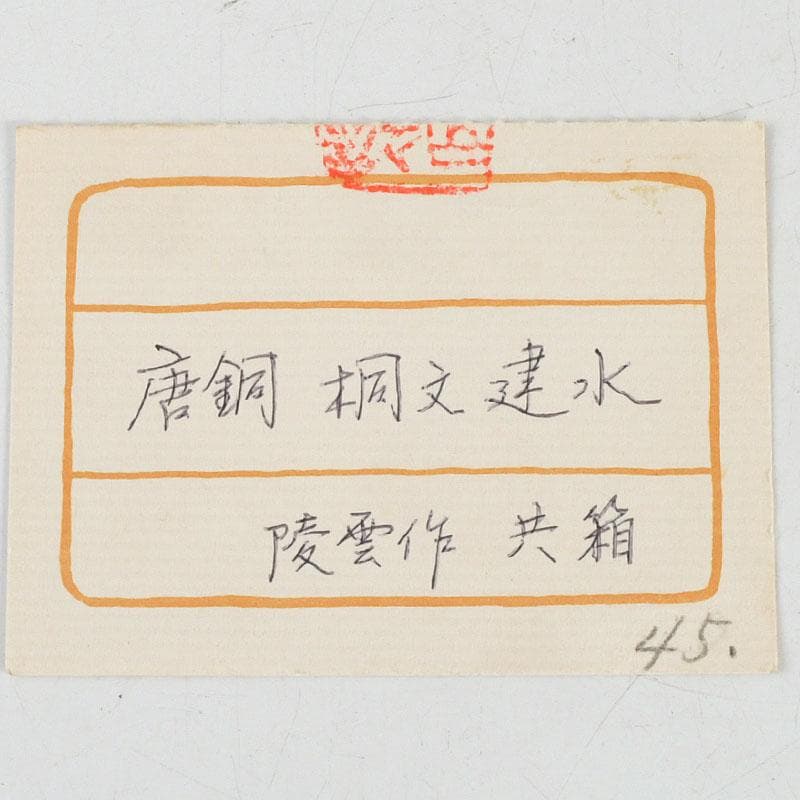 唐銅 桐文建水
陵雲作 共箱
45.